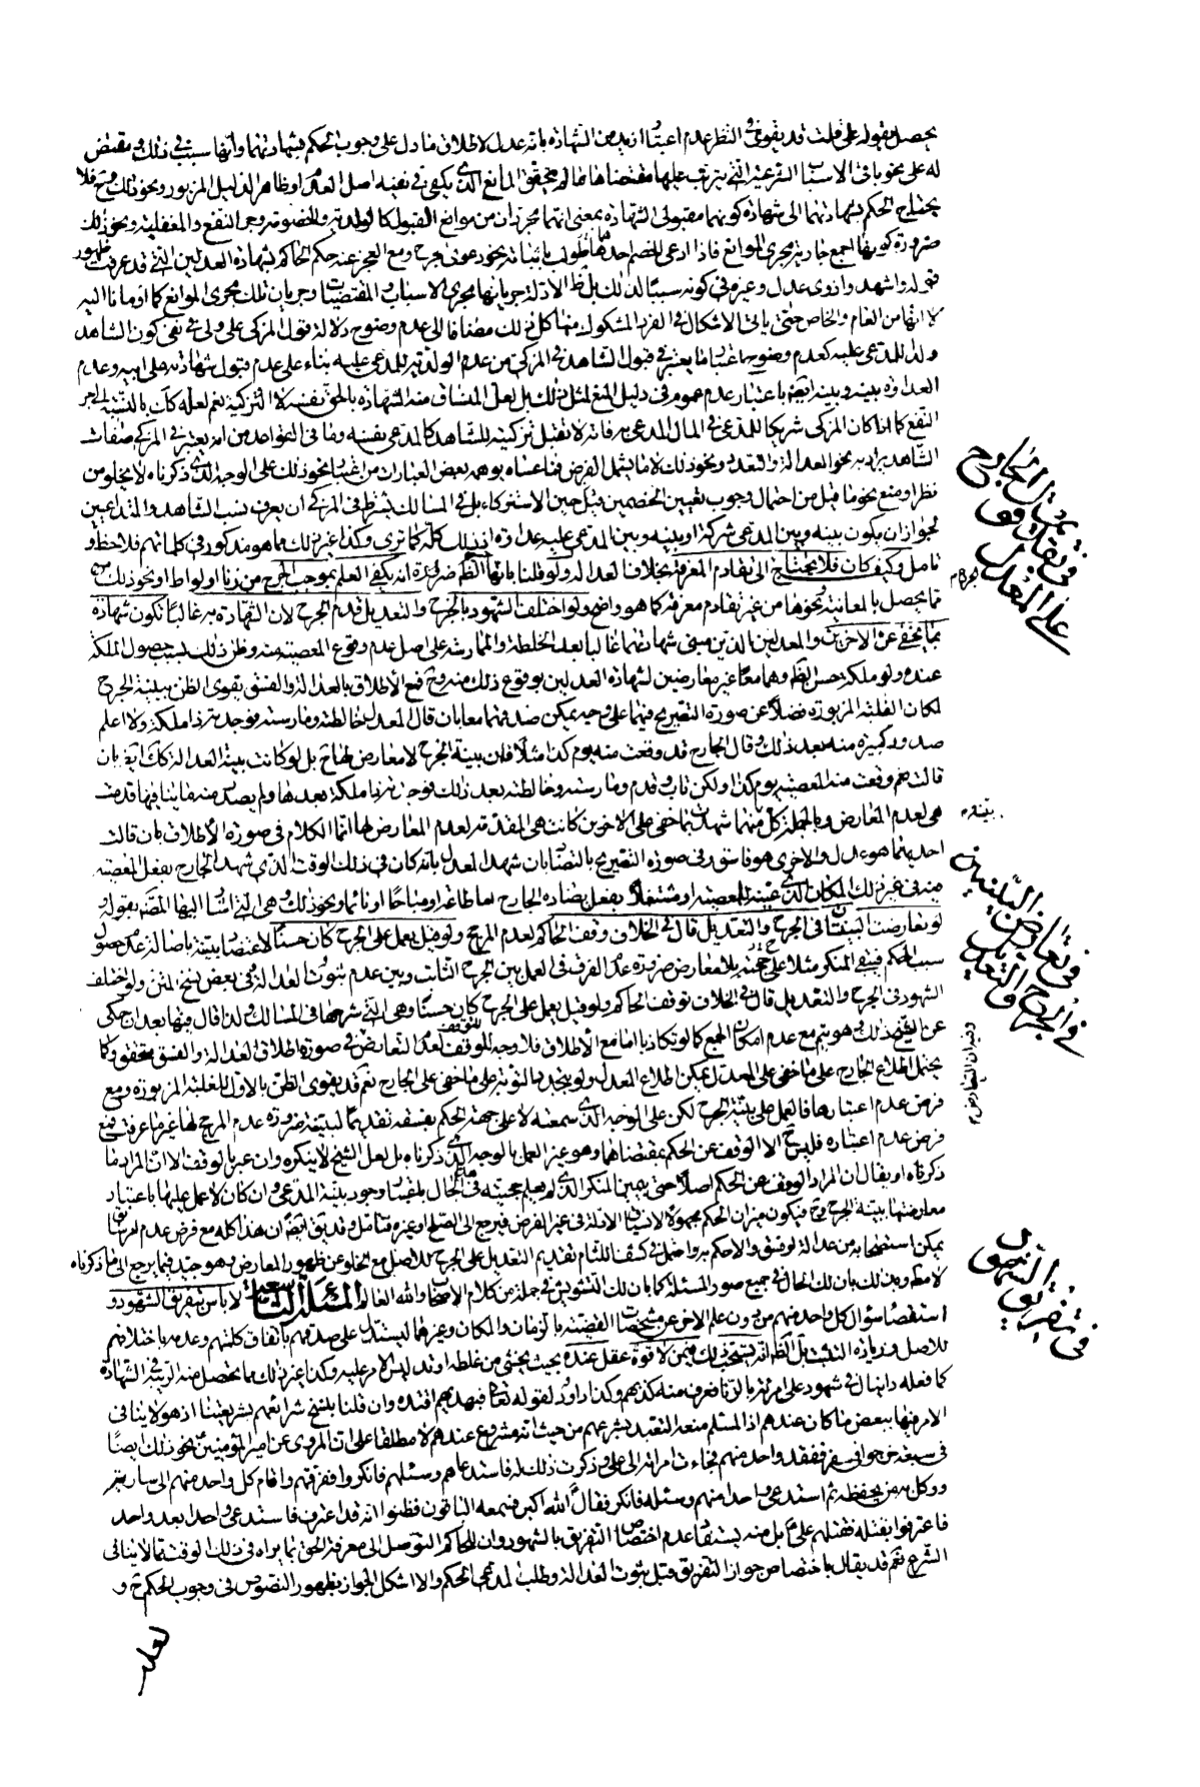 يحصل بقوله على قلت قد يقوى في النظر عدم اعتبار ازيد من الشهادة بانه عدل لاطلاق ما دل على وجوب الحكم بشهادتهما وانها سبب في ذلك ومقتض
له على نحو باقي الاسباب الشرعية التي يترتب عليها مقتضاها ما لم يتحقق المانع الذي يكفي في نفيه اصل العدم او ظاهر الدليل المزبور ونحو ذلك وح فلا
يحتاج الحكم بشهادتهما الى شهادة كونهما مقبولى الشهادة بمعنى انهما مجردان من موانع القبول كالولدية والخصومة وجر النفع والمغفلية ونحو ذلك
ضرورة كونها اجمع جارية مجرى الموانع فاذا ادعى الخصم احدها طولب باثباته نحو دعوى الجرح ومع العجز عنه حكم الحاكم بشهادة العدلين التي قد عرفت ظهور
قوله واشهدوا ذوى عدل وغيره في كونه سببا لذلك بل ظ الادلة جريانها مجرى الاسباب والمقتضيات وجريان تلك مجرى الموانع كما اومانا اليه
لا انها من العام والخاص حتى ياتي الاشكال في الفرد المشكوك منها كل ذلك مضافا الى عدم وضوح دلالة قول المزكى على ولى في نفي كون الشاهد
ولدا للمدعى عليه كعدم وضوح اعتبار ما يعتبر في قبول الشاهد في المزكى من عدم الولدية للمدعى عليه بناء على عدم قبول شهادته على ابيه وعدم
العداوة بينه وبينه ايضا باعتبار عدم عموم في دليل المنع لمثل ذلك بل لعل المنساق منه الشهادة بالحق نفسه لا التزكية نعم لعله كك بالنسبة الى جر
النفع كما اذا كان المزكى شريكا للمدعى في المال المدعى به فانه لا تقبل تزكيته للشاهد كالمدعى نفسه وما في القواعد من انه يعتبر في المزكى صفات
الشاهد يراد به نحو العدالة والتعدد ونحو ذلك لا ما يشمل الفرض فما عساه يوهمه بعض العبارات من اعتبار نحو ذلك على الوجه الذي ذكرناه لا يخلو من
نظر او منع نحو ما قيل من احتمال وجوب تعيين الخصمين قبل حين الاستزكاء بل في المسالك يشترط في المزكى ان يعرف نسب الشاهد والمتداعيين
لجواز ان يكون بينه وبين المدعى شركة او بينه وبين المدعى عليه عداوة اذ ذلك كله كما ترى وكذا غير ذلك مما هو مذكور في كلماتهم فلاحظ و
تامل وكيف كان فلا يحتاج الى تقادم المعرفة بخلاف العدالة ولو قلنا بانها الظ ضرورة انه يكفي العلم بموجب الجرح من زنا او لواط او نحو ذلك
مما يحصل بالمعاينة ونحوها من غير تقادم معرفة كما هو واضح ولو اختلف الشهود بالجرح والتعديل قدم الجرح لان الشهادة به غالبا تكون شهادة
بما يخفى عن الاخرين والمعدلين الذين مبنى شهادتهما غالبا بعد الخلطة والممارسة على اصل عدم وقوع المعصية منه وظن ذلك لسبب حصول الملكة
عنده ولو ملكة حسن الظ وهما معا غير معارضين لشهادة العدلين بوقوع ذلك منه وح فمع الاطلاق بالعدالة والفسق يقوى الظن ببينة الجرح
لمكان الغلبة المزبورة فضلا عن صورة التصريح فيهما على وجه يمكن ضد فهما معا بان قال المعدل خالطته ومارسته فوجدته ذا ملكة ولا اعلم
صدور كبيرة منه بعد ذلك وقال الجارح قد وقعت منه يوم كذا مثلا فان بينة الجرح لا معارض لها ح بل لو كانت بينة العدالة كك ايضا بان
قالت نعم وقعت منه المعصية يوم كذا ولكن تاب وقدم ومارسته وخالطته بعد ذلك فوجدته ذا ملكة بعدها ولم يصدر منه ما ينافيها قدمت
هي لعدم المعارض وبالجملة كل منهما شهدت بما خفى على الاخرين كانت هي المقدمة لعدم المعارض لها انما الكلام في صورة الاطلاق بان قالت
احديهما هو عدل والاخرى هو فاسق وفي صورة التصريح بالتضاد بان شهد المعدل بانه كان في ذلك الوقت الذي شهد الجارح بفعل المعصية
منه في غير ذلك المكان الذي عينه للمعصية او مشتغلا بفعل يضاد ما الجارح اما طاعة او مباحا او نائما ونحو ذلك وهي التي اشار اليها المص بقوله و
لو تعارضت البينتان في الجرح والتعديل قال في الخلاف وقف الحاكم لعدم المرجح ولو قيل يعمل على الجرح كان حسنا لاعتضاد بينته باصالة عدم حصول
سبب الحكم فيبقى المنكر مثلا على حجته بلا معارض ضرورة عدم الفرق في العمل بين الجرح الثابت وبين عدم ثبوت العدالة وفي بعض نسخ المتن ولو اختلف
الشهود في الجرح والتعديل قال في الخلاف توقف الحاكم ولو قيل يعمل على الجرح كان حسنا وهي التي شرحها في المسالك ولذا قال فيها بعد ان حكى
عن الشيخ ذلك وهو يتم مع عدم امكان الجمع كما لو تكاذبا اما مع الاطلاق فلا وجه للتوقف لعدم التعارض في صورة اطلاق العدالة والفسق متحقق وكما
يحتمل اطلاع الجارح على ما خفى على المعدل يمكن اطلاع المعدل ولو بتجدد التوبة على ما خفى على الجارح نعم قد يقوى الظن بالاول للغلبة المزبورة ومع
فرض عدم اعتبارها فالعمل على بينة الجرح لكن على الوجه الذي سمعته لا على جهة الحكم بفسقه تقديما لبينته ضرورة عدم المرجح لها غير ما عرفت فمع
فرض عدم اعتباره فليس ح الا الوقف عن الحكم بمقتضاهما وهو عين العمل بالوجه الذي ذكرناه بل لعل الشيخ لا ينكره وان عبر بالوقف الا ان المراد ما
ذكرناه او يقال ان المراد الوقف عن الحكم اصلا حتى بيمين المنكر الذي لم يعلم حجيته في الحال باعتبار وجود بينة المدعى وان كان لا عمل عليها باعتبار
معارضتها ببينة الجرح وح فيكون ميزان الحكم مجهولا لانسياق الادلة في غير الفرض فيرجع الى الصلح او غيره فتامل وقد يق ايضا ان هذا كله مع فرض عدم امر سابق
يمكن استصحابه من عدالة او فسق والا حكم به واحتمل في كشف اللثام تقديم التعديل على الجرح للاصل مع الخلو عن ظهور المعارض وهو جيد فيما يرجع الى ما ذكرناه
لا مطلقا وبذلك بان لك الحال في جميع صور المسئلة كما بان لك التشويش في جملة من كلام الاصحاب والله العالم المسئلة التاسعة لا باس بتفريق الشهود و
استقصاء سؤال كل واحد منهم من دون علم الاخر عن مشخصات القضية بالزمان والمكان وغيرهما ليستدل على صدقهم باتفاق كلمتهم وعدمه باختلافهم
للاصل وزيادة التثبت بل الظ انه يستحب ذلك فيمن لا قوة عقل عنده بحيث يخشى من غلطه او تدليس الامر عليه وكذا غير ذلك مما يحصل منه الريبة في الشهادة
كما فعله دانيال في شهود على امرئة بالزنا فعرف منه كذبهم وكذا داود لقوله تعالى فبهديهم اقتده وان قلنا بنسخ شرائعهم بشريعتنا اذ هو لا ينافي
الامر منها ببعض ما كان عندهم اذ المسلم منعه التعبد بشرعهم من حيث انه مشروع عندهم لا مطلقا على ان المروى عن امير المؤمنين نحو ذلك ايضا
في سبعة خرجوا في سفر ففقد واحد منهم فجاءت امرئته الى على وذكرت ذلك له فاستدعاهم وسئلهم فانكروا ففرقهم واقام كل واحد منهم الى سارية
ووكل به من يحفظه ثم استدعى واحدا منهم وسئله فانكر فقال الله اكبر فسمعه الباقون فظنوا انه قد اعترف فاستدعى واحدا بعد واحد
فاعترفوا بقتله فقتلهم على بل منه يستفاد عدم اختصاص التفريق بالشهود وان للحاكم التوصل الى معرفة الحق بما يراه في ذلك الوقت مما لا ينافي
الشرع نعم قد يقال باختصاص جواز التفريق قبل ثبوت العدالة وطلب المدعى الحكم والا اشكل الجواز بظهور النصوص في وجوب الحكم ح و
لعله
في تعديل الجارح
في تقدم قول
على المعدل
بينة
في تعارض البينتين
في الجرح والتعديل
وفيه ان التعارض
في تفريق الشهود